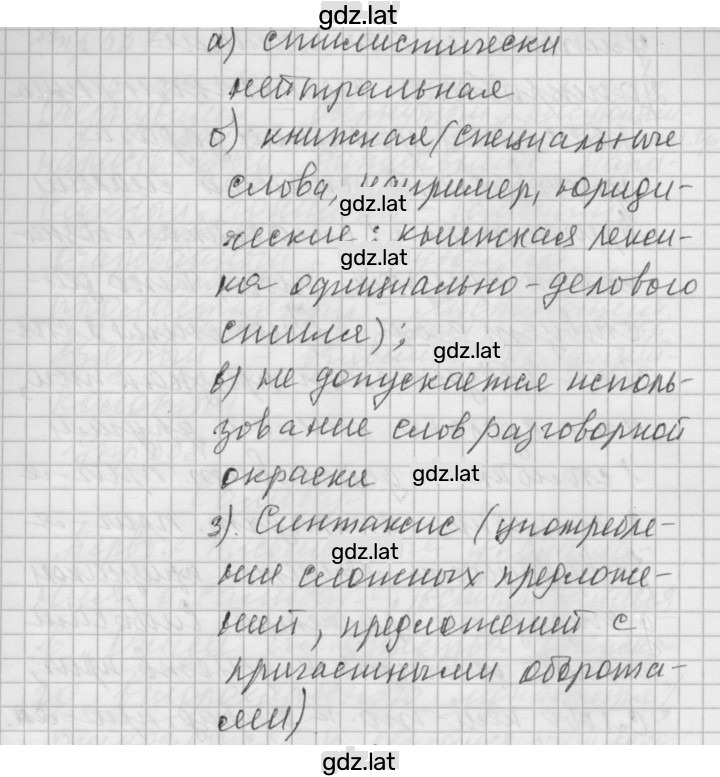 gdz.lat
а) стилистически
нейтральная
б) книжная (специальные
слова, например, юриди-
gdz.lat
ческие; книжная лекси-
gdz.lat
ка официально-делового
стиля);
gdz.lat
в) не допускается исполь-
зование слов разговорной
окраски
gdz.lat
3). Синтаксис (употребле-
gdz.lat
ние сложных предложе-
ний, предложений с
причастными оборота-
ми)
gdz.lat